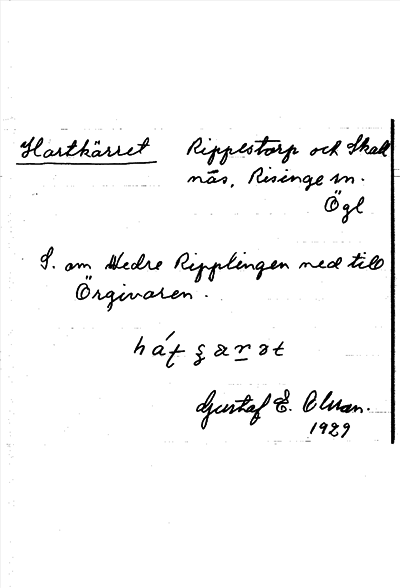 Hartkärret Rippestorp och Skall
näs, Risinge sn.
Ögl
S. om Nedre Ripplingen ned till
Örgivaren.
Gustaf E. Olsson.
1929